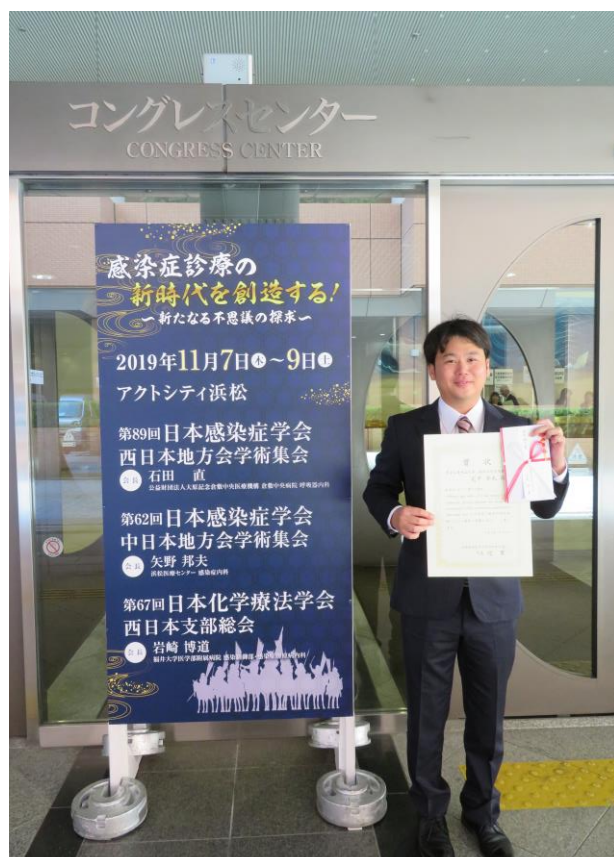 コングレスセンター
CONGRESS CENTER
感染症診療の
新時代を創造する!
〜新たなる不思議の探求〜
2019年11月7日木〜9日土
アクトシティ浜松
第89回日本感染症学会
西日本地方会学術集会
会長 石田 直
公益財団法人大原記念倉敷中央医療機構 倉敷中央病院 呼吸器内科
第62回日本感染症学会
中日本地方会学術集会
会長 矢野 邦夫
浜松医療センター 感染症内科
第67回日本化学療法学会
西日本支部総会
会長 岩崎 博道
福井大学医学部附属病院
賞状